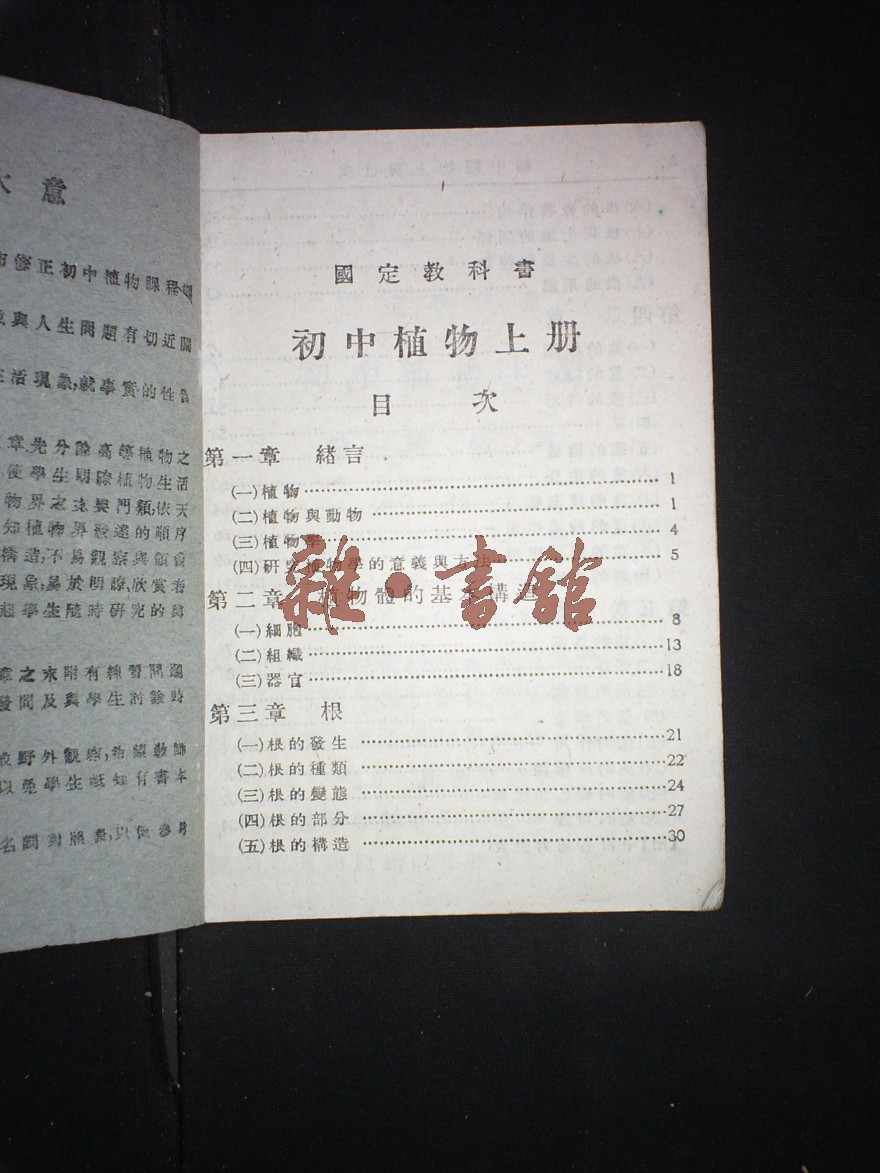 大意
修正初中植物課程
與人生問題有切近關
活現象,就事實的性質
章先分論高等植物之
使學生明瞭植物生活
物界之來與門類,依天
知植物界發達的順序
構造,不易觀察與領會
現象,易於明瞭,欣賞者
起學生隨時研究的
章之末附有練習問題
發問及與學生討論時
野外觀察,希望教師
以免學生祗知有書本
名詞對照表,以便參考
國定教科書
初中植物上册
目 次
第一章 緒言
㈠植物………1
㈡植物與動物………1
㈢植物學………4
㈣研究植物學的意義與方法………5
第二章 植物體的基本構造
㈠細胞………8
㈡組織………13
㈢器官………18
第三章 根
㈠根的發生………21
㈡根的種類………22
㈢根的變態………24
㈣根的部分………27
㈤根的構造………30
雜·書館